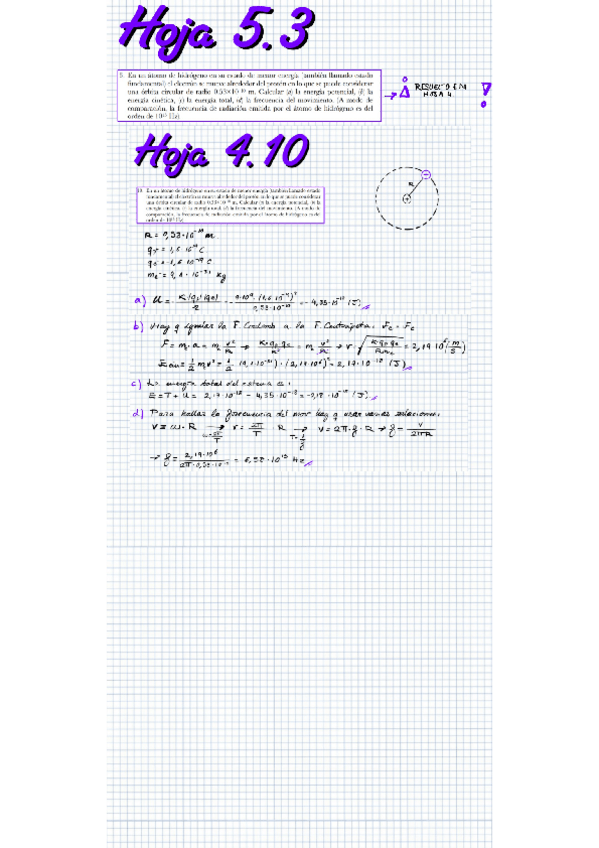 Hoja 5.3
3. En un átomo de hidrógeno en su estado de menor energía (también llamado estado
fundamental) el electrón se mueve alrededor del protón en lo que se puede considerar
una órbita circular de radio 0.53×10⁻¹⁰ m. Calcular (a) la energía potencial, (b) la
energía cinética, (c) la energía total, (d) la frecuencia del movimiento. (A modo de
comparación, la frecuencia de radiación emitida por el átomo de hidrógeno es del
orden de 10¹⁵ Hz)
→ ¡ RESUELTO EN HOJA 4 !
Hoja 4.10
10. En un átomo de hidrógeno en su estado de menor energía (también llamado estado
fundamental) el electrón se mueve alrededor del protón en lo que se puede considerar
una órbita circular de radio 0.53×10⁻¹⁰ m. Calcular (a) la energía potencial, (b) la
energía cinética, (c) la energía total, (d) la frecuencia del movimiento. (A modo de
comparación, la frecuencia de radiación emitida por el átomo de hidrógeno es del
orden de 10¹⁵ Hz)
R
R = 0,53·10⁻¹⁰ m
C
kg
a) U =
b) Hay q igualar la F. Coulomb a la F. Centrípeta. Fc = Fc
F = m·a = m v²/R
= 2,19·10⁶ (m/s)
= 2,17·10⁻¹⁸ (J)
c) La energía total del sistema es:
E = T + U = 2,17·10⁻¹⁸ - 4,35·10⁻¹⁸ = -2,18·10⁻¹⁸ (J)
d) Para hallar la frecuencia del mov hay q usar varias relaciones.
V = ω·R → v = 2π/T · R → V = 2π·f·R → f = v/2πR
→ f = 2,19·10⁶ / 2π·0,53·10⁻¹⁰ = 6,58·10¹⁵ Hz